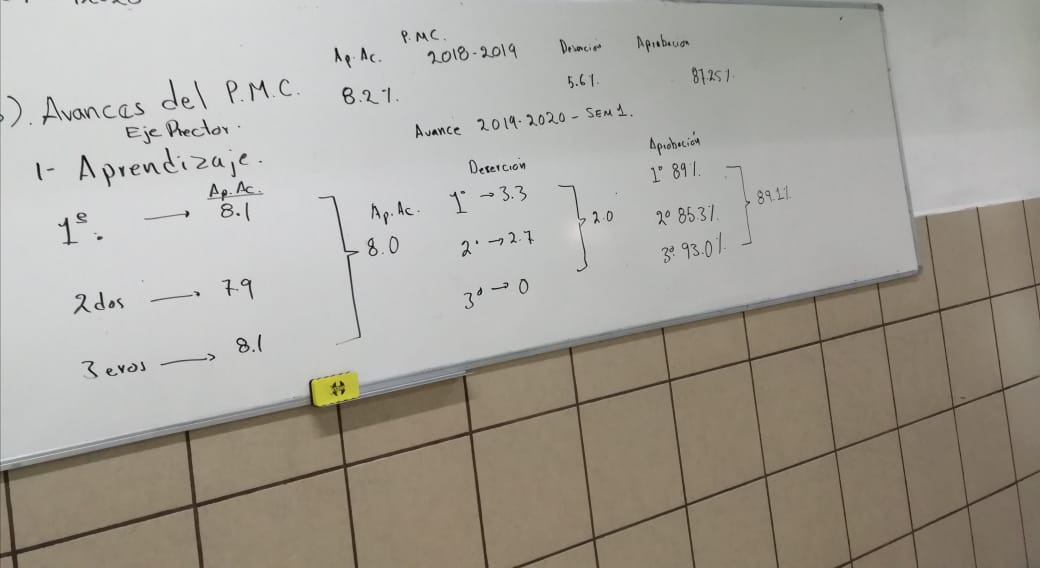 P.M.C.
Ap. Ac. 2018-2019 Deserción Aprobación
). Avances del P.M.C. 8.2%. 5.6%. 87.25%.
Eje Rector.
Avance 2019-2020 - SEM 1.
1- Aprendizaje.
Ap. Ac. Deserción Aprobación
1º. → 8.1 1º → 3.3 1º 89%.
Ap. Ac. 8.0 2º → 2.7 2.0 2º 85.3%. 89.1%
2dos → 7.9 3º → 0 3º 93.0%.
3eros → 8.1